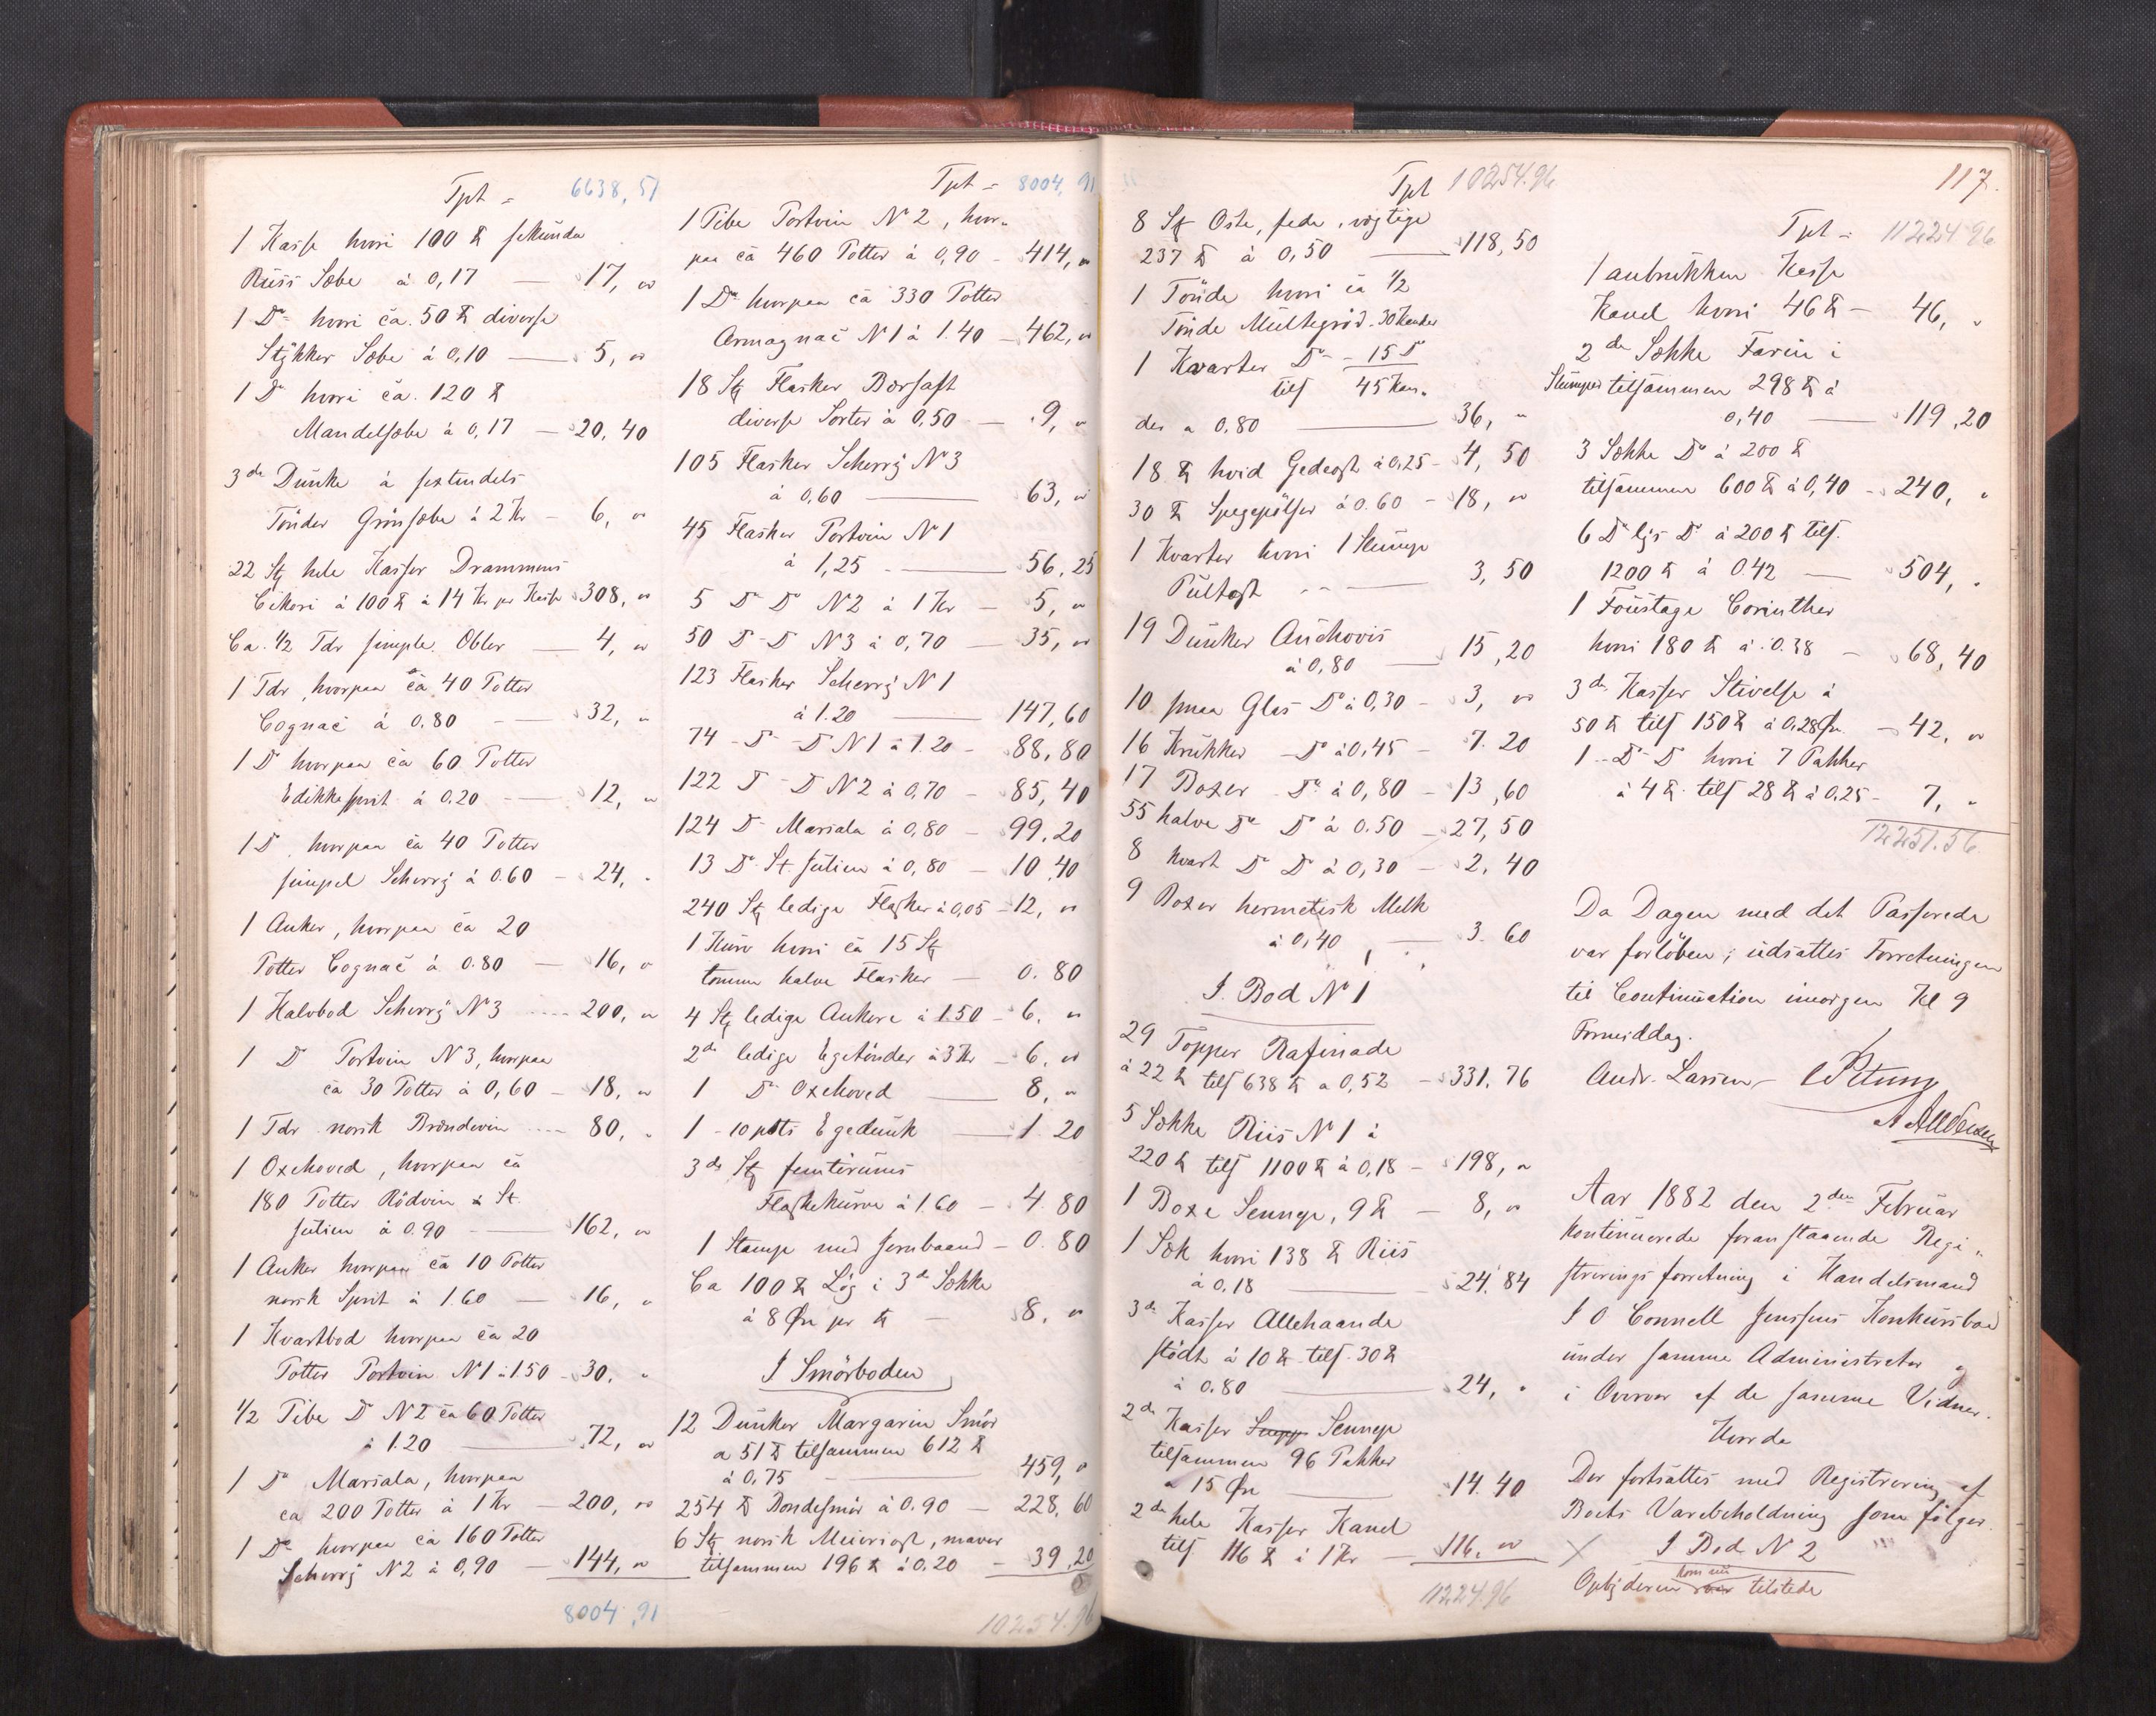 Tpt = 6638,51
1 Kasse hvori 100 ℔ sekunda
Russ Sæbe à 0,17 — 17, "
1 Do hvori ca. 50 ℔ diverse
Stykker Sæbe à 0,10 — 5, "
1 Do hvori ca. 120 ℔
Mandelsæbe à 0,17 — 20,40
3de Dunke à sextendels
Tönder Grönsæbe à 2 Kr — 6, "
22 Stk hele Kasser Drammens
Cikori à 100 ℔ à 14 Kr pr Kasse 308, "
Ca. 1/2 Tdr simple Obler — 4, "
1 Tdr, hvorpaa ca 40 Potter
Cognac à 0.80 — 32, "
1 Do hvorpaa ca 60 Potter
Edikkesprit à 0.20 — 12, "
1 Do, hvorpaa ca 40 Potter
simpel Scherrÿ à 0.60 — 24, "
1 Anker, hvorpaa ca 20
Potter Cognac à 0.80 — 16, "
1 Halvbod Scherrÿ No 3 — 200, "
1 Do Portvin No 3, hvorpaa
ca 30 Potter à 0,60 — 18, "
1 Tdr norsk Brændevin — 80, "
1 Oxehoved, hvorpaa ca
180 Potter Rödvin St.
Julien à 0.90 — 162, "
1 Anker hvorpaa ca 10 Potter
norsk Sprit à 1.60 — 16, "
1 Kvartbod hvorpaa ca 20
Potter Portvin No 1 à 1.50 — 30, "
1/2 Pibe Do No 2 ca 60 Potter
à 1.20 — 72, "
1 Do Marsala, hvorpaa
ca 200 Potter à 1 Kr — 200, "
1 Do hvorpaa ca 160 Potter
Scherrÿ No 2 à 0,90 — 144, "
8004,91
Tpt = 8004,91
1 Pibe Portvin No 2, hvor-
paa ca 460 Potter à 0,90 — 414, "
1 Do hvorpaa ca 330 Potter
Armagnac No 1 à 1.40 — 462, "
18 Stk Flasker Bærsaft
diverse Sorter à 0,50 — 9, "
105 Flasker Scherrÿ No 3
à 0,60 — 63, "
45 Flasker Portvin No 1
à 1,25 — 56,25
5 Do Do No 2 à 1 Kr — 5, "
50 Do - Do No 3 à 0,70 — 35, "
123 Flasker Scherrÿ No 1
à 1.20 — 147,60
74 - Do - Do No 1 à 1.20 — 88,80
122 Do - Do No 2 à 0,70 — 85,40
124 Do Marsala à 0,80 — 99.20
13 Do St. Julien à 0,80 — 10,40
240 Stk ledige Flasker à 0,05 — 12, "
1 Kurv hvori ca 15 Stk
tomme halve Flasker — 0.80
4 Stk ledige Ankere à 1.50 — 6, "
2de ledige Egetönder à 3 Kr — 6, "
1 Do Oxehoved — 8, "
1 - 10 potts Egedunk — 1.20
3de Stk femtirums
Flaskekurve à 1.60 — 4.80
1 Stampe med Jernbaand — 0.80
Ca 100 ℔ Lög i 3de Sække
à 8 Øre pr ℔ — 8, "
I Smörboden
12 Dunker Margarin Smör
a 51 ℔ tilsammen 612 ℔
à 0,75 — 459, "
254 ℔ Bondesmör à 0.90 — 228,60
6 Stk norsk Meieriost, maver
tilsammen 196 ℔ à 0.20 — 39,20
10254.96
Tpt 10254.96
8 Stk Oste, fede, vigtige
237 ℔ à 0,50 — 118,50
1 Tönde hvori ca 1/2
Tönde Multegröd - 30 Kander
1 Kvarter Do — 15 Do
tils 45 Kan-
der a 0.80 — 36, "
18 ℔ hvid Gedeost à 0,25 — 4,50
30 ℔ Spegepölser à 0.60 — 18, "
1 Kvarter hvori 1 Slump
Pultost — 3,50
19 Dunker Anchovis
à 0,80 — 15,20
10 smaa Glas Do à 0,30 — 3, "
16 Krukker — Do à 0,45 — 7.20
17 Boxer Do à 0,80 — 13,60
55 halve Do Do à 0.50 — 27,50
8 kvart Do Do à 0,30 — 2.40
9 Boxer hermetisk Melk
à 0,40 — 3.60
I. Bod No 1
29 Topper Rafinade
à 22 ℔ tils 638 ℔ a 0,52 — 331.76
5 Sække Riis No 1 à
220 ℔ tils 1100 ℔ à 0,18 — 198, "
1 Boxe Sennep, 9 ℔ — 8, "
1 Sæk hvori 138 ℔ Riis
à 0.18 — 24.84
3de Kasser Allehaande
stödt à 10 ℔ tils. 30 ℔
à 0.80 — 24, "
2de Kasser Sennep
tilsammen 96 Pakker
a 15 Øre — 14.40
2de hele Kasser Kanel
tils 116 ℔ à 1 Kr — 116, "
11224.96
117.
Tpt = 11224.96
1 anbrukken Kasse
Kanel hvori 46 ℔ — 46, "
2de Sække Farin i
Slumper tilsammen 298 ℔ à
0,40 — 119,20
3 Sække Do à 200 ℔
tilsammen 600 ℔ à 0,40 — 240, "
6 Do lys Do à 200 ℔ tils.
1200 ℔ à 0.42 — 504, "
1 Foustage Corinther
hvori 180 ℔ à 0.38 — 68,40
3de Kasser Stivelse à
50 ℔ tils 150 ℔ à 0,28 Øre — 42, "
1 - Do - Do hvori 7 Pakker
à 4 ℔ tils 28 ℔ à 0,25 — 7, "
12251.56
Da Dagen med det Passerede
var forlöben; udsattes Forretningen
til Continuation imorgen Kl 9
Formiddag.
Andr. Larsen
Aar 1882 den 2den Februar
kontinuerede foranstaaende Regi-
streringsforretning i Handelsmand
J O Connell Jenssens Konkursbo
under samme Administrator og
i Overvær af de samme Vidner.
Hvorda
Der fortsattes med Registrering af
Boets Varebeholdning som fölger
I Bod No 2
kom nu
Opbyderen var tilstede